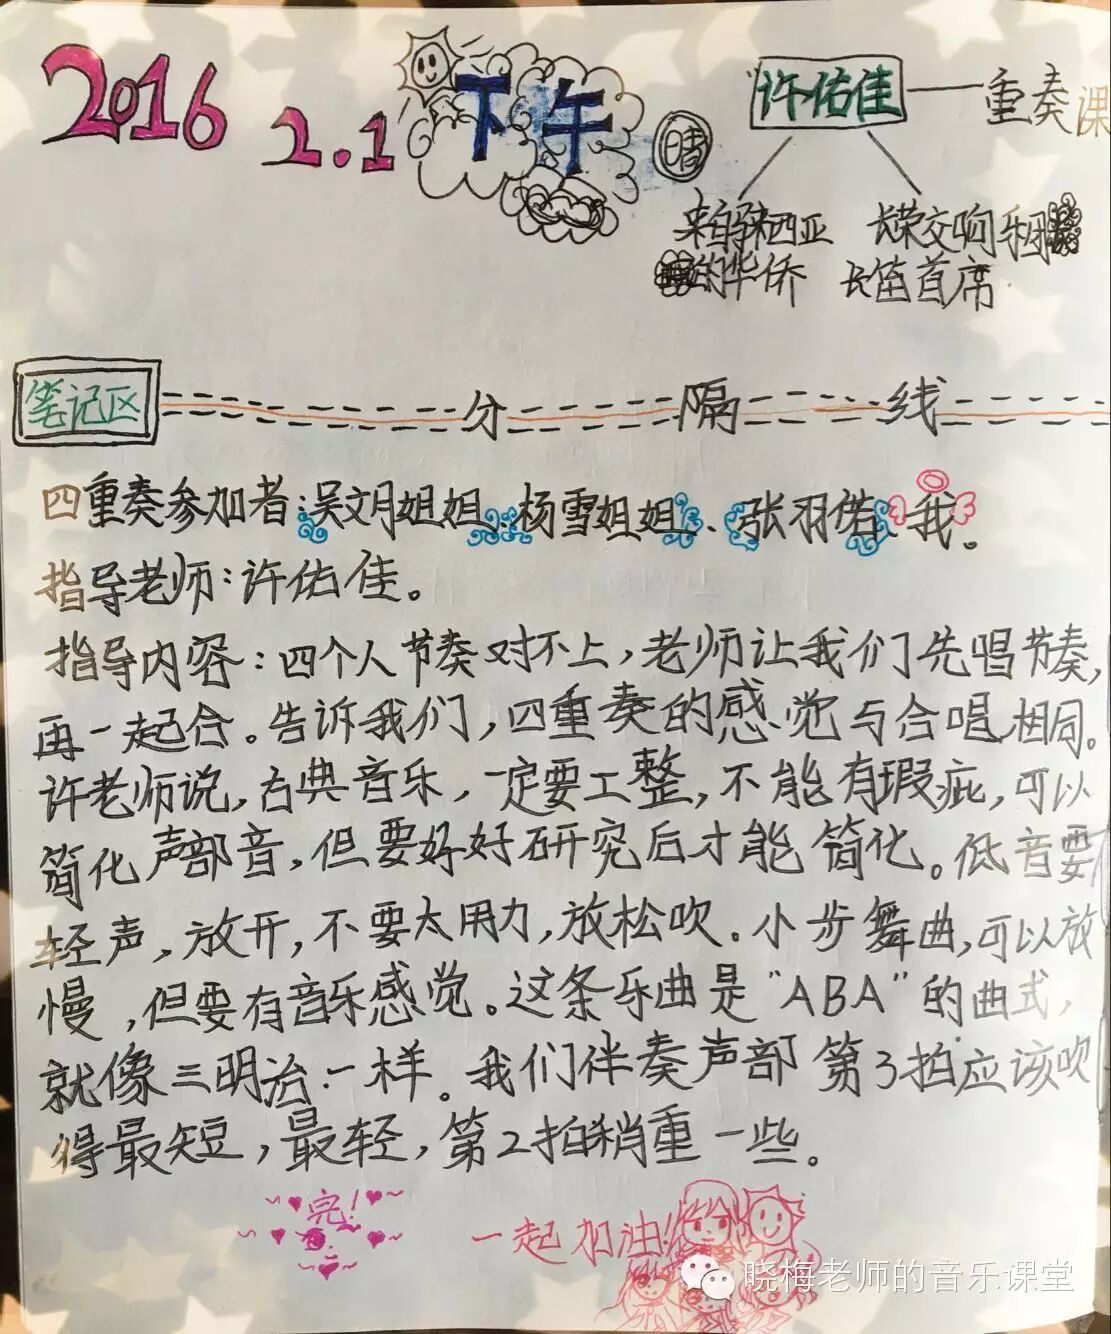 2016 2.1 下午 晴
许佑佳——重奏课
来自马来西亚 长荣交响乐团
的华侨 长笛首席
笔记区 分 隔 线
四重奏参加者:吴文月姐姐、杨雪姐姐、张羽偌、我。
指导老师:许佑佳。
指导内容:四个人节奏对不上,老师让我们先唱节奏,
再一起合。告诉我们,四重奏的感觉与合唱相同。
许老师说,古典音乐,一定要工整,不能有瑕疵,可以
简化声部音,但要好好研究后才能简化。低音要
轻声,放开,不要太用力,放松吹。小步舞曲,可以放
慢,但要有音乐感觉。这条乐曲是"ABA"的曲式,
就像三明治一样。我们伴奏声部第3拍应该吹
得最短,最轻,第2拍稍重一些。
~完!~
一起加油!
晓梅老师的音乐课堂